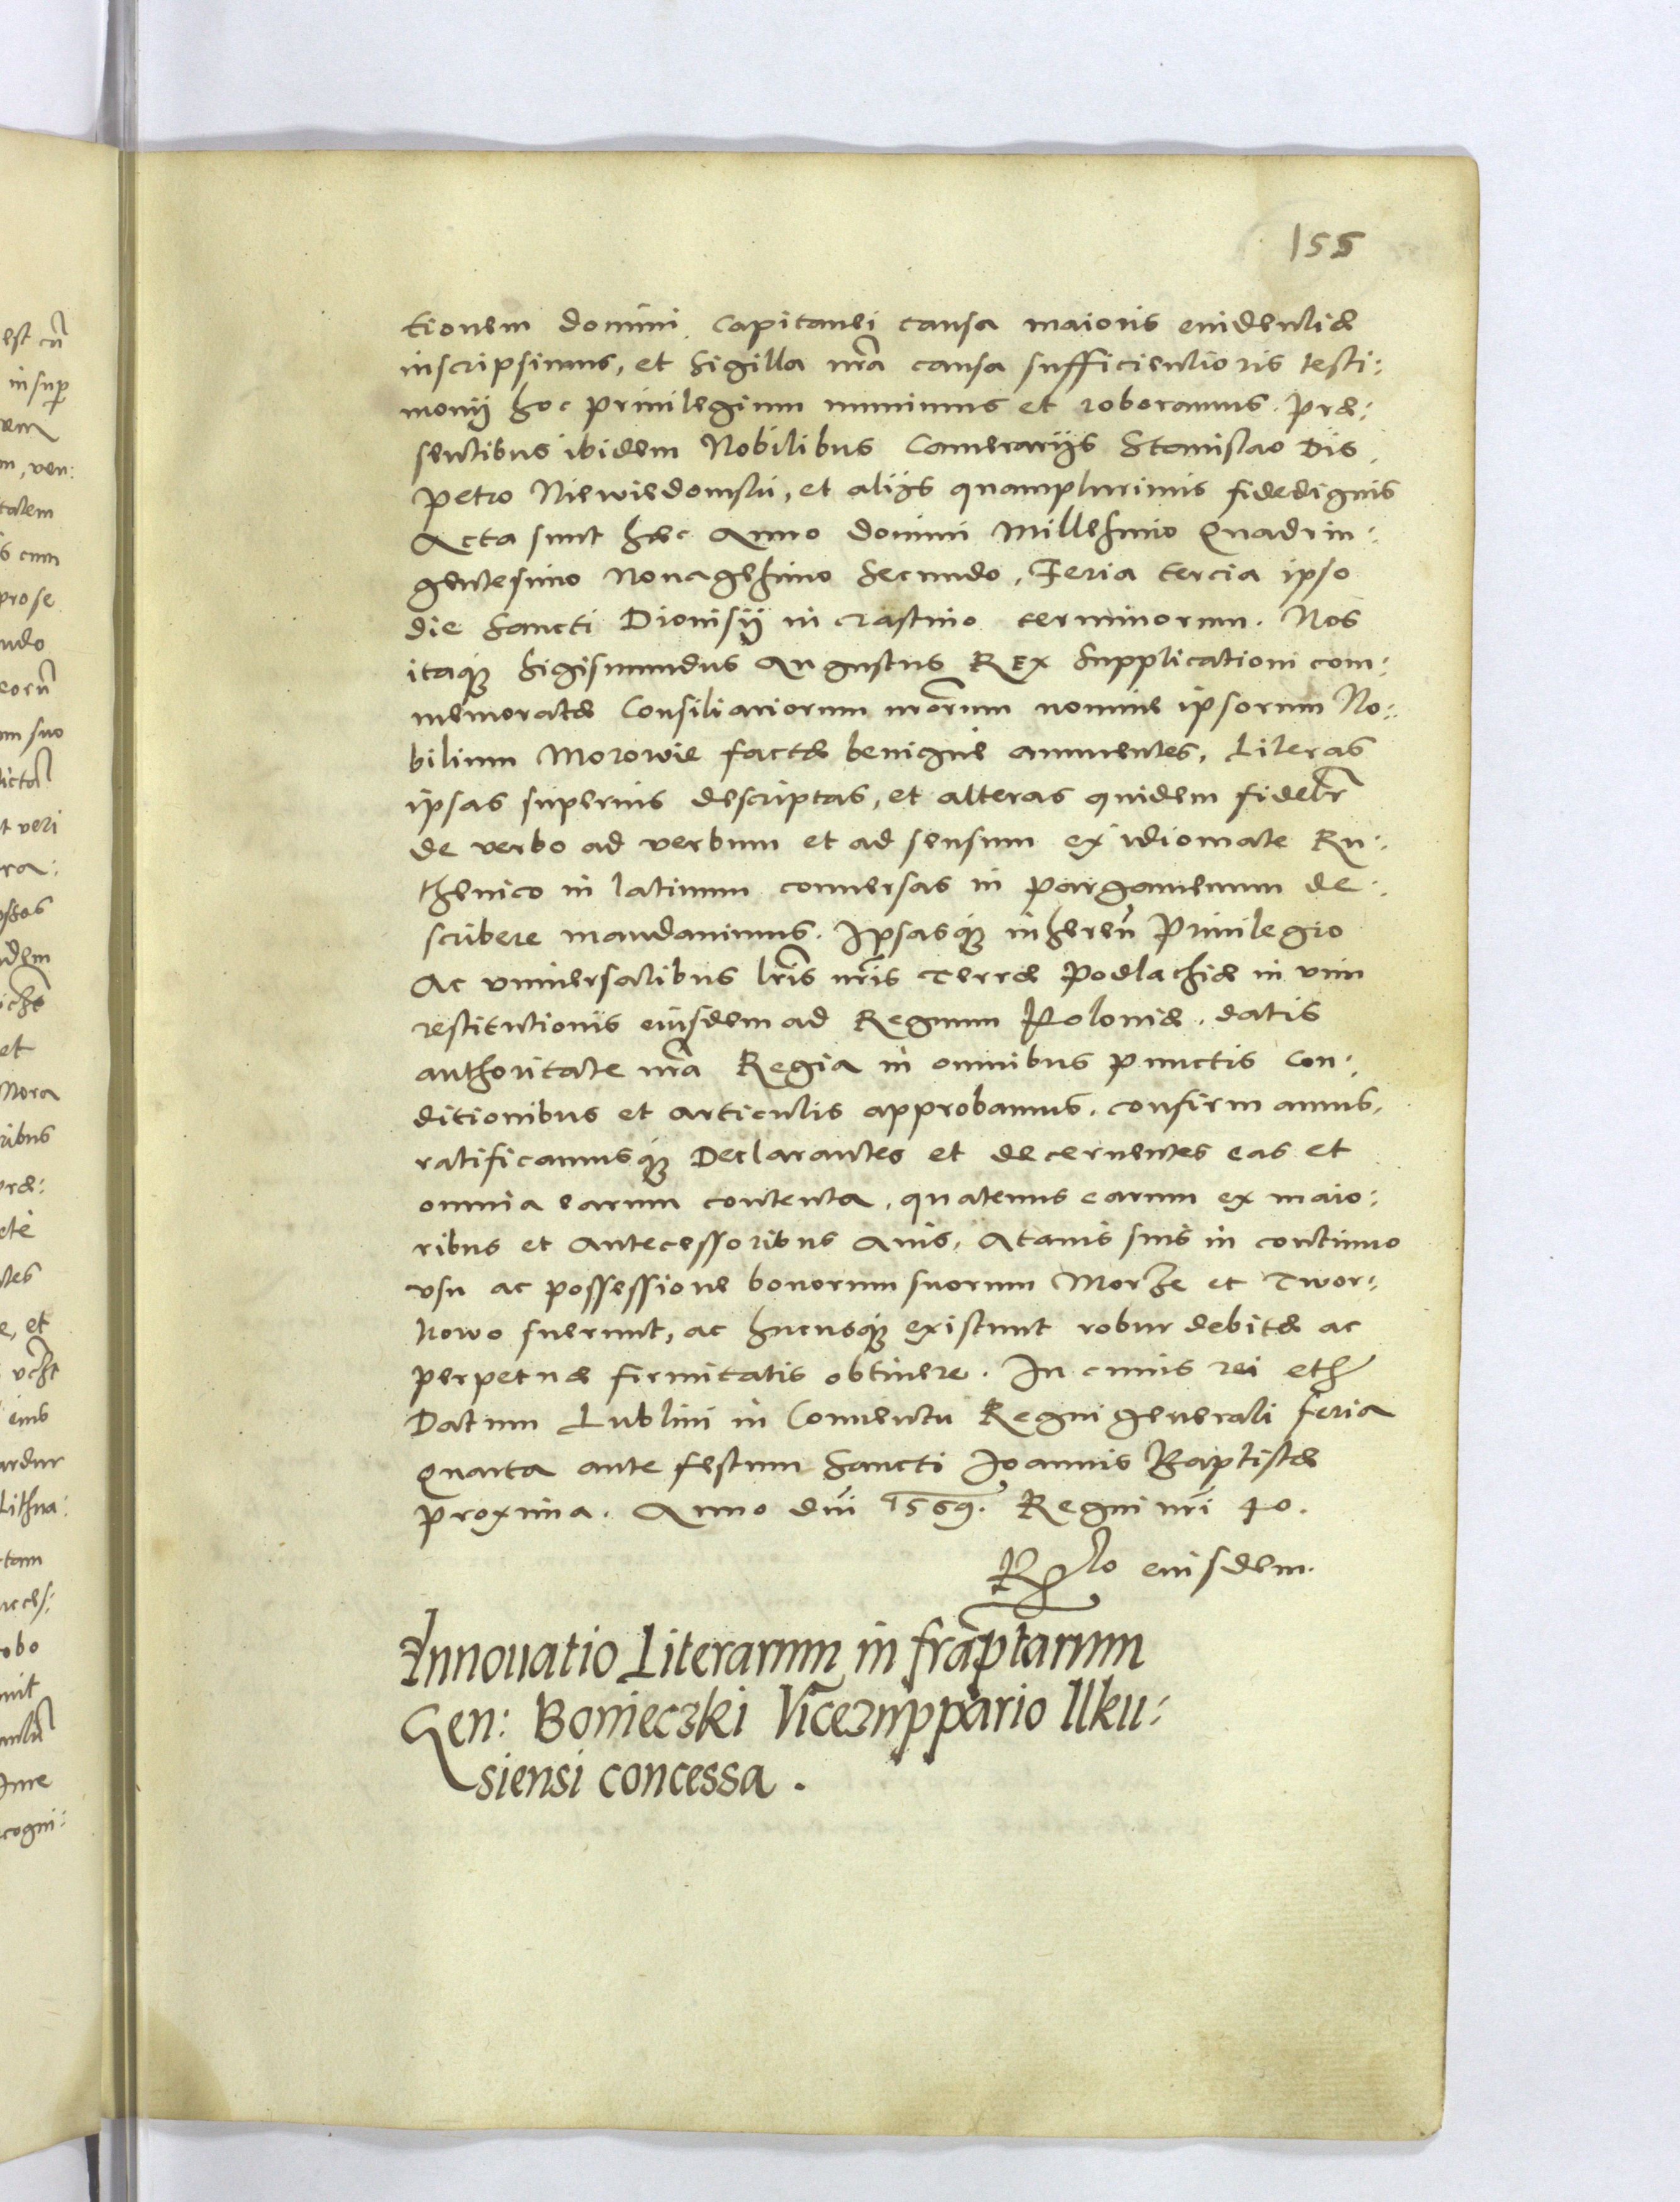 155
tionem domini Capitanei causa maioris euidentiæ
inscripsimus, et sigilla nrã causa sufficientioris testi:
monij hoc priuilegium munimus et roboramus. Præ:
sentibus ibidem Nobilibus Camerarijs Stanislao Dis
Petro Niewiedomski, et alijs quamplurimis fidedignis
Acta sunt hæc Anno domini Millesimo Quadrin:
gentesimo Nonagesimo secundo, Feria tercia ipso
die Sancti Dionisij in crastino terminorum. Nos
itaq3 Sigismundus Augustus REX supplicationi com:
memoratæ Consiliariorum nrõrum nomine ipsorum No:
bilium Morowie factæ benigne annuentes, Literas
ipsas superius descriptas, et alteras quidem fidelr̃
de verbo ad verbum et ad sensum ex idiomate Ru:
thenico in latinum conuersas in pargamenum de:
scribere mandauimus. Ipsasq3 inhereñ Priuilegio
Ac vniuersalibus lrĩs nrĩs Terræ Podlachiæ in vim
restitutionis eiusdem ad Regnum Poloniæ. datis
authoritate nrã Regia in omnibus punctis Con:
ditionibus et articulis approbamus. confirmamus,
ratificamusq3 Declarantes et decernentes eas et
omnia earum contenta, quatenus earum ex maio:
ribus et Antecessoribus Auis, Atauis suis in continuo
vsu ac possessione bonorum suorum Morze et Twor:
kowo fuerunt, ac hucusq3 existunt robur debitæ ac
perpetuæ firmitatis obtinere. In cuius rei etc̃
Datum Lublini in Conuentu Regni generali feria
Quarta ante festum Sancti Joannis Baptistæ
proxima. Anno dnĩ 1569. Regni nrĩ 40.
Rlo eiusdem.
Innouatio Literarum infrãptarum
Gen: Bonieczki Vicezuppario Ilku:
siensi concessa.